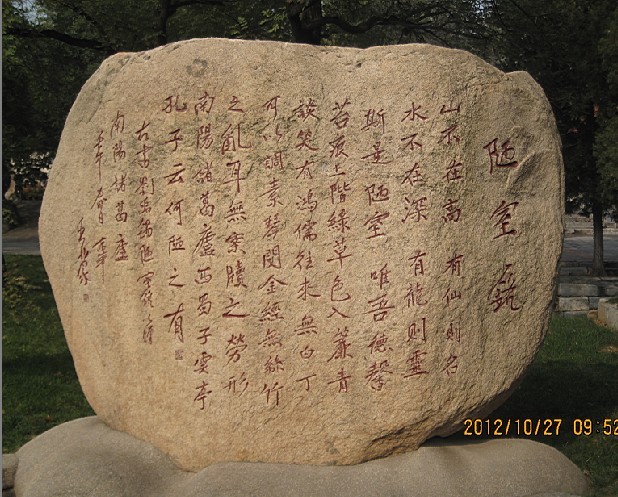 陋室銘
山不在高 有仙則名
水不在深 有龍則靈
斯是陋室 唯吾德馨
苔痕上階綠草色入簾青
談笑有鴻儒往來無白丁
可以調素琴閱金經無絲竹
之亂耳無案牘之勞形
南陽諸葛廬西蜀子雲亭
孔子云何陋之有
劉禹錫陋室銘
南陽諸葛廬
壬午春日
2012/10/27 09:52